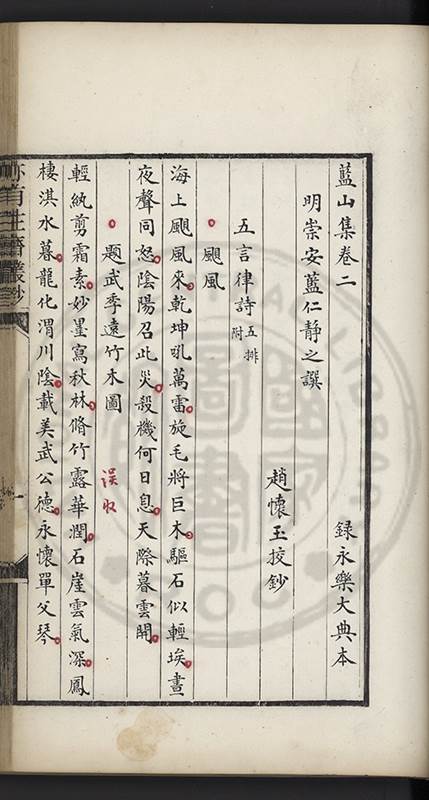 藍山集卷二　錄永樂大典本
明崇安藍仁靜之譔
趙懷玉挍鈔
五言律詩 五排附
颶風
海上颶風來乾坤吼萬雷旋毛將巨木驅石似輕埃晝
夜聲同怒陰陽召此災殺機何日息天際暮雲開
題武季遠竹木圖　误收
輕紈剪霜素妙墨寫秋林脩竹露華潤石崖雲氣深鳳
棲淇水暮龍化渭川陰載美武公德永懷單父琴
亦有生齋叢鈔